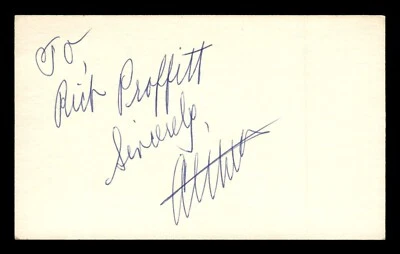 To,
Rich Proffitt
Sincerely,